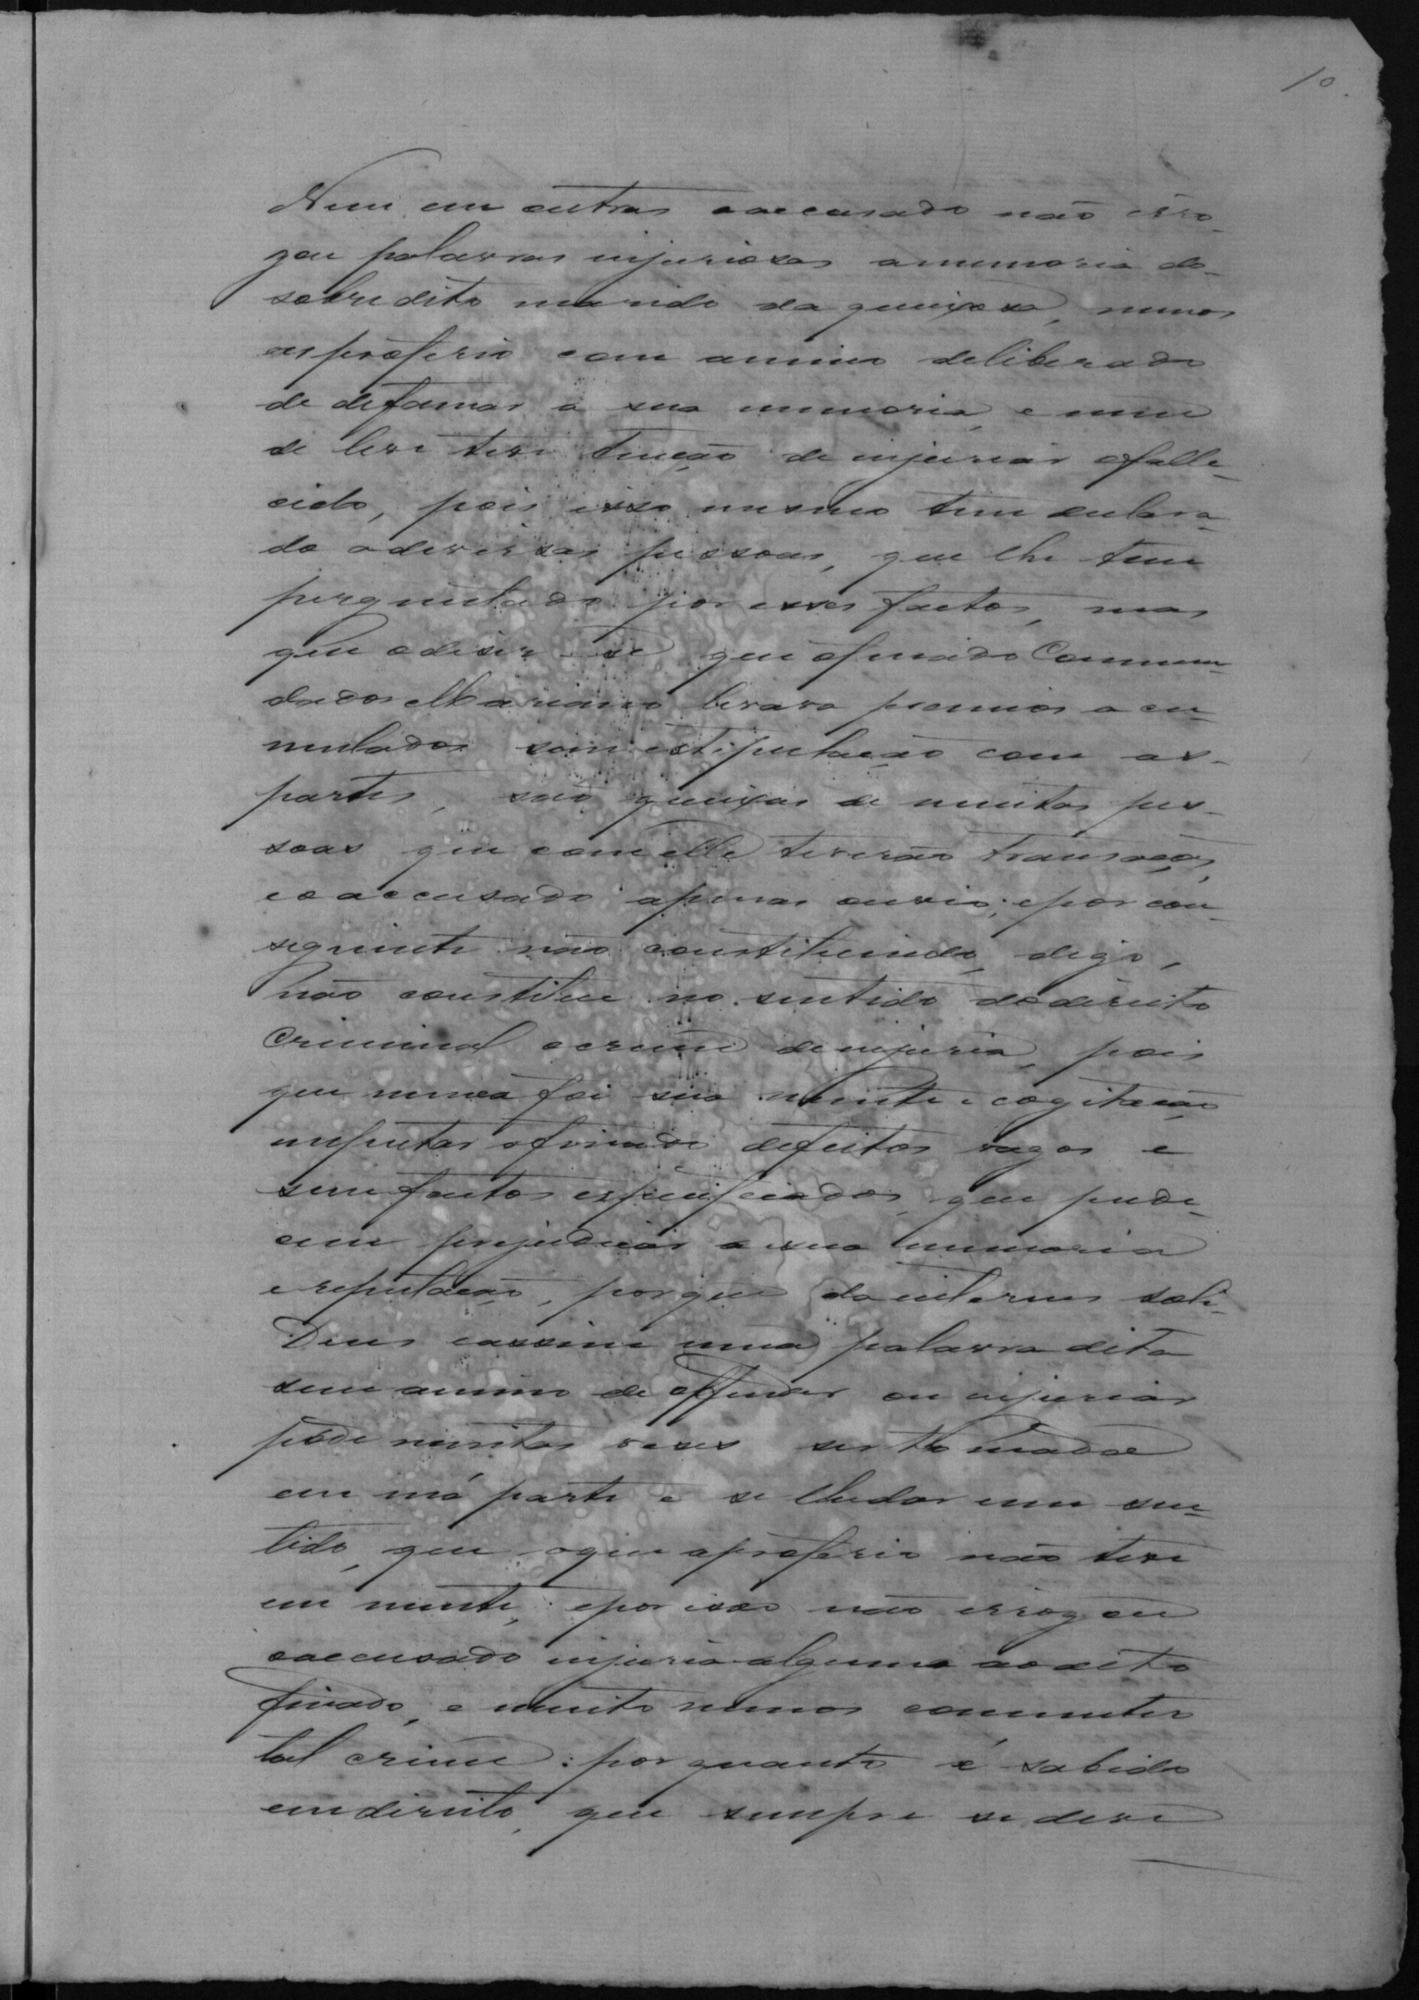 10.
Nem em outras oaccusado não irro-
gou palavras injuriosas amemoria do
sobredito marido da queixosa, menos
as proferio com animo deliberado
de defamar a sua memoria, e nem
de leve teve tenção de injuriar ofalle-
cido, pois isso mesmo tem declara-
do adiversas pessoas, que lhe tem
perguntado por esses factos, mas
que odiser-se que ofinado Commen-
dador Mariano levava premios accu-
mulados sem estipulação com as
partes, são queixas de muitas pes-
soas que com elle tiverão transações,
eoaccusado apenas ouvio; epor con-
seguinte não constituindo, digo,
não constitue no sentido dodireito
Criminal ocrime deinjuria, pois
que nunca foi sua mente e cogitação
imputar ofinado defeitos vagos e
sem factos especificados, que pude-
cem prejudicar a sua memoria
e reputação, porque do internus solo
Deus eassim uma palavra dita
sem animo de offender ou injuriar
pode muitas veses ser tomada
em má parte e se lhedar um sen-
tido, que oque aproferio não teve
em mente, epor isso não irrogou
oaccusado injuria alguma aodito
finado, e muito menos commeteo
tal crime: por quanto é sabido
emdireito, que sempre se deve